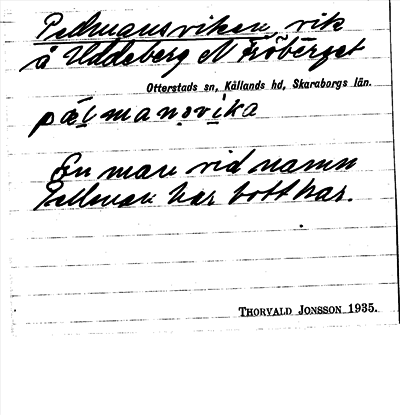 Pellmansviken vik
å Uddeberg N Fröberget
Otterstads sn, Kållands hd, Skaraborgs län.
pælmansvika
En man vid namn
Pellman har bott här.
THORVALD JONSSON 1935.